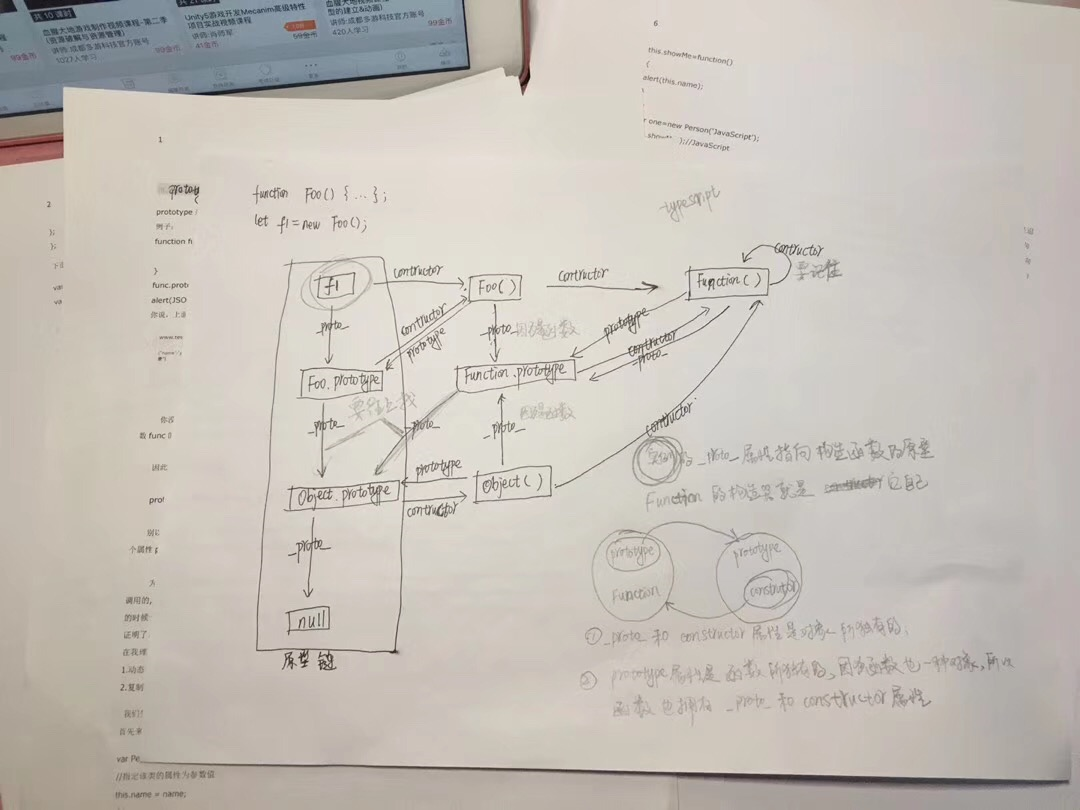 共 10 课时
血腥大地游戏制作视频课程-第二季
(资源破解与资源管理)
讲师:成都多游科技官方账号
1027人学习
99金币
Unity5游戏开发Mecanim高级特性
项目实战视频课程
讲师:肖师军
41金币
59金币
型的建立&动画)
讲师:成都多游科技官方账号
420人学习
99金币
6
this.showMe=function()
{
alert(this.name);
one=new Person("JavaScript");
);//JavaScript
1
prototype
例子:
function f
}
func.prot
alert(JSO
你说,上
www.tes
数 func
因此
prot
个属性
调用的,
的时候
证明了
在我难
1.动态
2.复制
我们
首先来
var Pe
//指定该类的属性为参数值
this.name = name;
2
};
};
var
va
function Foo() { ... };
let f1 = new Foo();
typescript
f1
contructor
Foo()
contructor
Function()
contructor
要记住
_proto_
contructor
prototype
_proto_
因为是函数
prototype
contructor
_proto_
Foo.prototype
Function.prototype
_proto_
_proto_
_proto_
因为是函数
contructor
Object.prototype
prototype
contructor
Object()
_proto_
null
原型链
的 _proto_ 属性指向构造函数的原型
Function 的构造器就是 它自己
prototype
Function
prototype
constructor
① _proto_ 和 constructor 属性是对象所独有的,
② prototype 属性是函数所独有的,因为函数也一种对象,所以
函数也拥有 _proto_ 和 constructor 属性